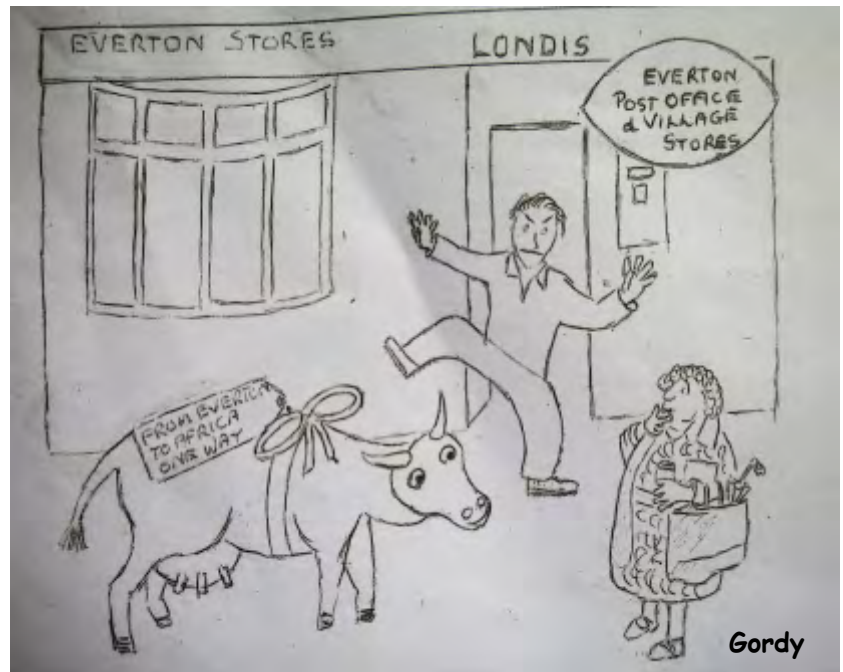 EVERTON STORES
LONDIS
EVERTON
POST OFFICE
& VILLAGE
STORES
FROM EVERTON
TO AFRICA
ONE WAY
Gordy